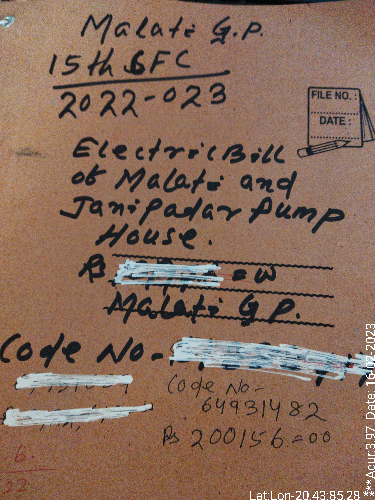 Malati G.P.
15th SFC
2022-023
FILE NO.:
DATE:
Electric Bill
of Malati and
Janipadar Pump
House.
Malati G.P.
Code No-
Code No-
64931482
Rs 200156=00
Lat:Lon-20.43:85.28 ***Acur:3.97 Date: 16-02-2023